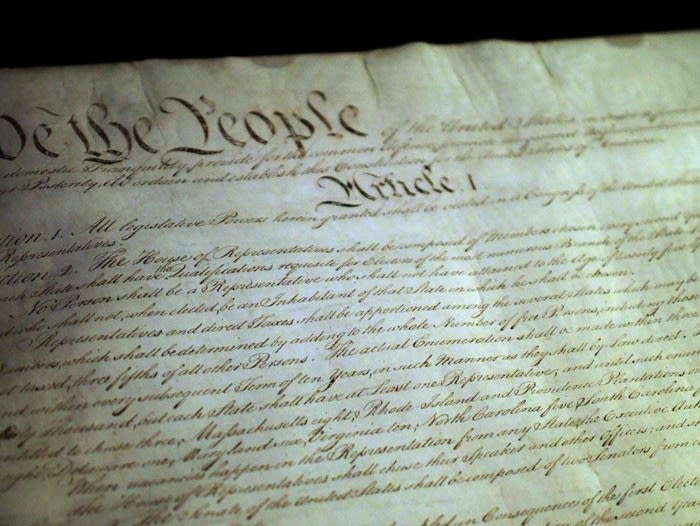 We the People of the United States
domestic Tranquility, provide for the common
Posterity, do ordain and establish this Constitution
Article I
tion. 1. All legislative Powers herein granted shall be vested in a Congress of the
Representatives.
tion 2. The House of Representatives shall be composed of Members chosen
each State shall have the Qualifications requisite for Electors of the most numerous Branch of the State
No Person shall be a Representative who shall not have attained to the Age of twenty five
who shall not, when elected, be an Inhabitant of that State in which he shall be chosen.
Representatives and direct Taxes shall be apportioned among the several States which may
Numbers, which shall be determined by adding to the whole Number of free Persons, including those
not taxed, three fifths of all other Persons. The actual Enumeration shall be made within three
and within every subsequent Term of ten Years, in such Manner as they shall by Law direct.
thousand, but each State shall have at Least one Representative; and until such
entitled to chuse three, Massachusetts eight, Rhode Island and Providence Plantations
eight, Delaware one, Maryland six, Virginia ten, North Carolina five, South Carolina
When vacancies happen in the Representation from any State, the Executive
The House of Representatives shall chuse their Speaker and other Officers; and
The Senate of the United States shall be composed of two Senators from
in Consequence of the first
of the second Year